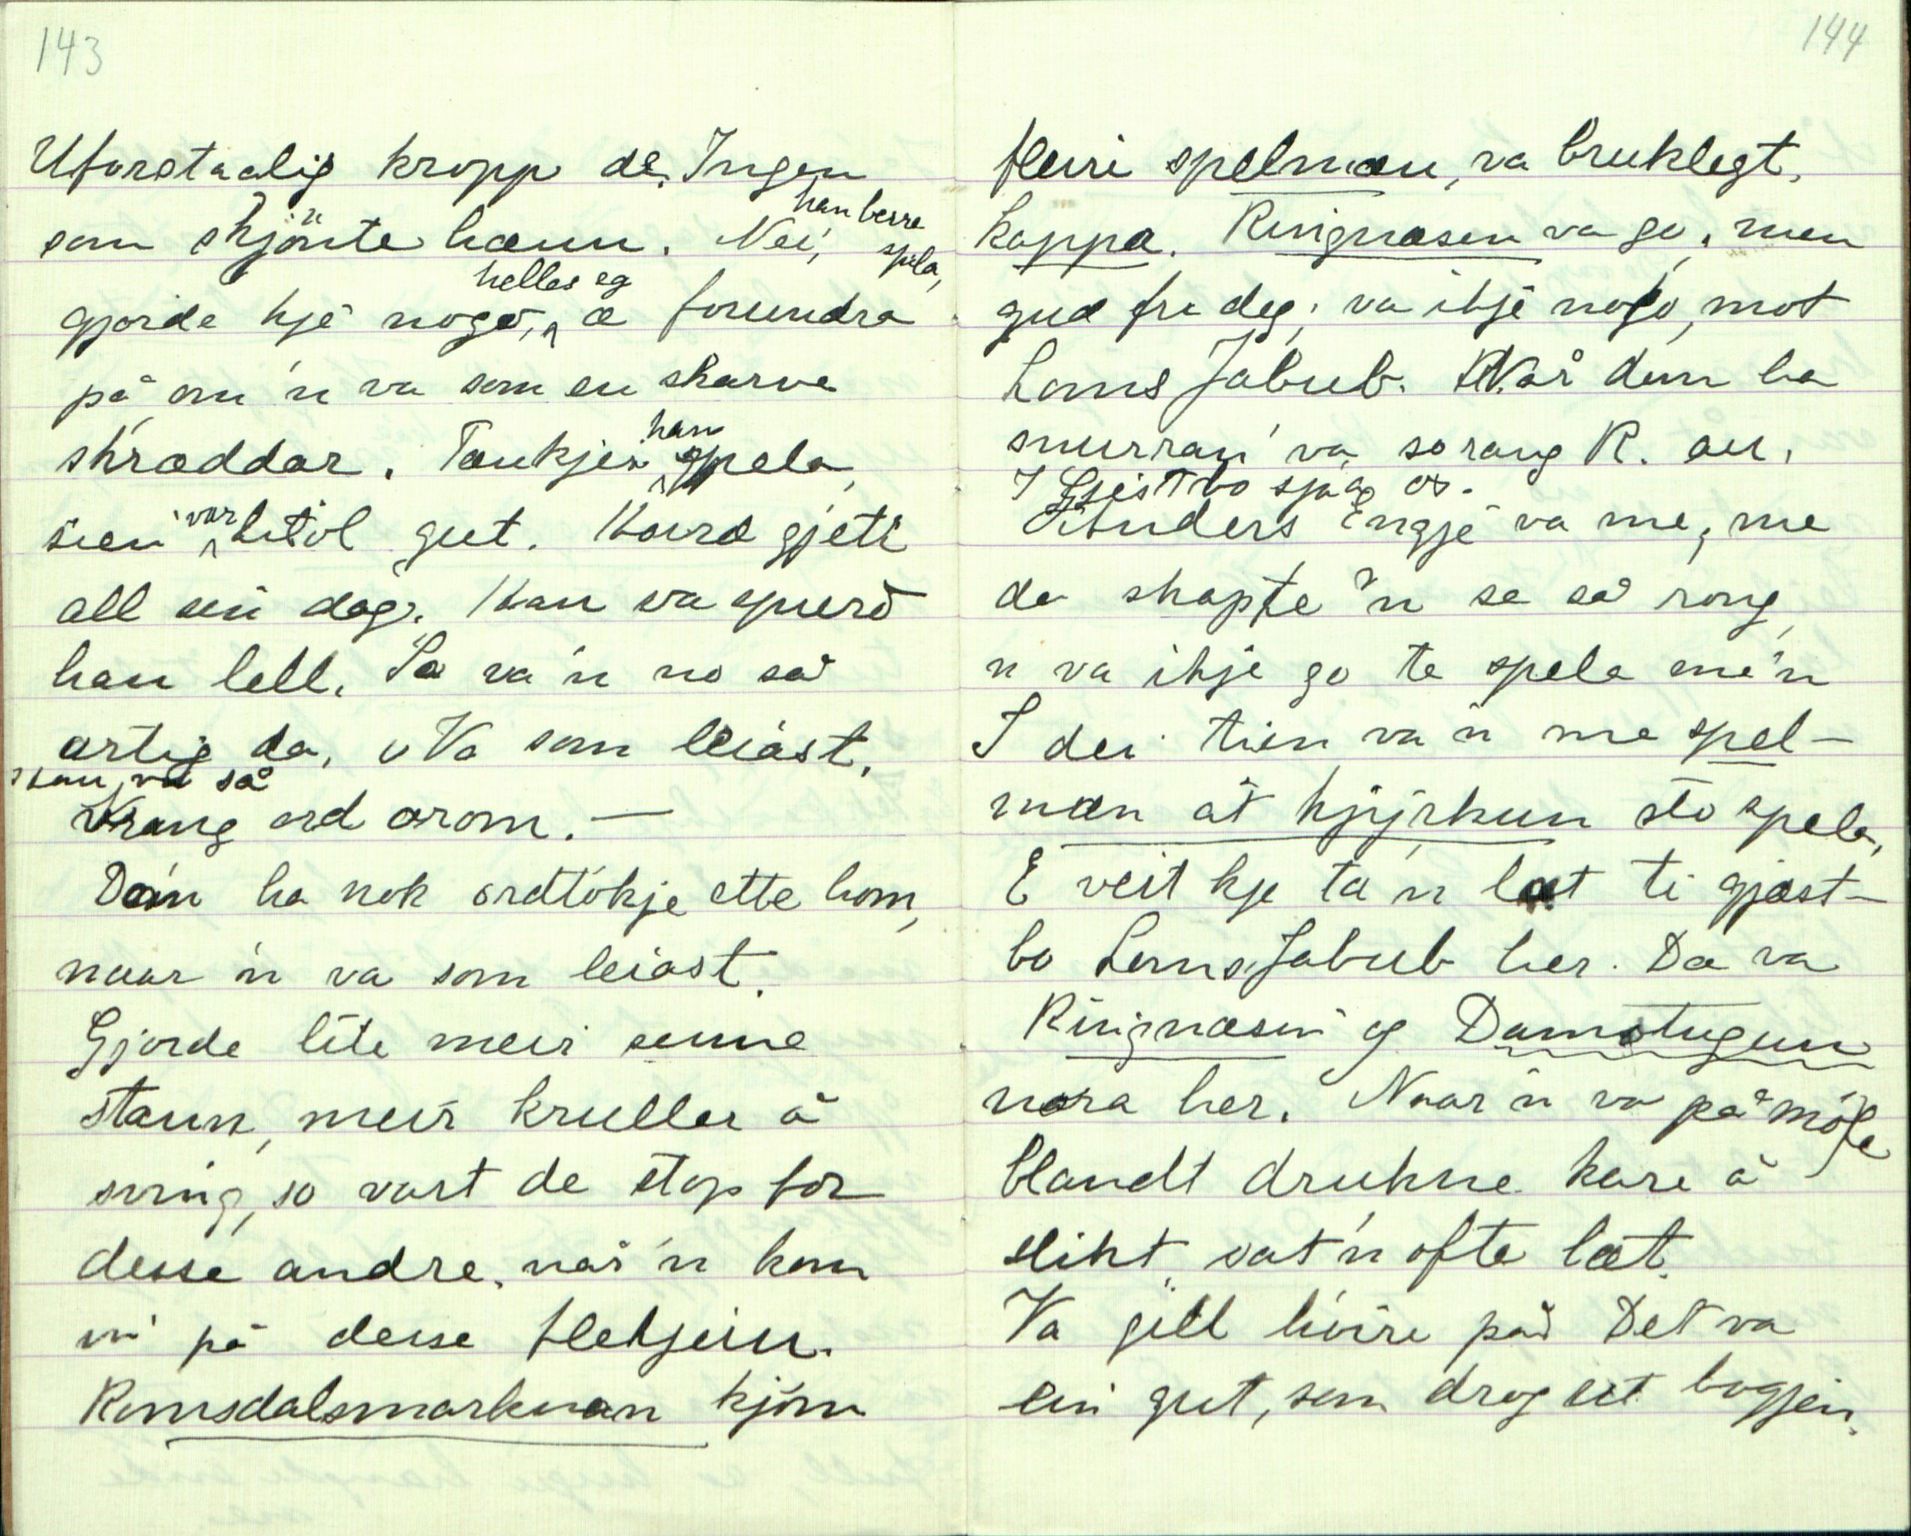 143
Uforstaalig kropp de. Ingen
som skjönte hænn. Nei, han berre spela,
gjorde kje nogo, helles eg æ forundra
på om 'n va som en skarve
skræddar. Tænkjer han spela,
sien var litol gut. Havræ gjeti
all sin dag. Kan va spurd
han lell. Så va'n no så
artig da. Va som leiast.
Han va så
Vrang ord arom. —
Da'n ha nok ordtökje ette hom,
naar 'n va som leiast.
Gjorde lite meir senne
staun, meir kruller å
sving, so vart de stop for
desse andre, når 'n kom
in på desse flekjein.
Romsdalsmarknan kjöm
144
fleiri spelmæn, va bruklegt,
kappa. Ringnæsen va go, men
gud fri deg; va ikje nogo, mot
Loms Jakub. Når dem ha
snurran' va so rang R. au.
I Gjestbo sjåg os.
Anders Engje va me, me
da skapte 'n se så rong,
'n va ikje go te spela me'n
I dei tien va'n me spel-
mæn åt kjyrkun sto spela,
E veit kje ta'n læt ti gjæst-
bo Loms Jakub her. Da va
Ringnæsen og Damstugun
nora her. Naar 'n va på möte
blandt drukne kare å
slikt, vat'n ofte læt.
Va gill hivire på. Det va
ein gut, som drog ut bogjen.